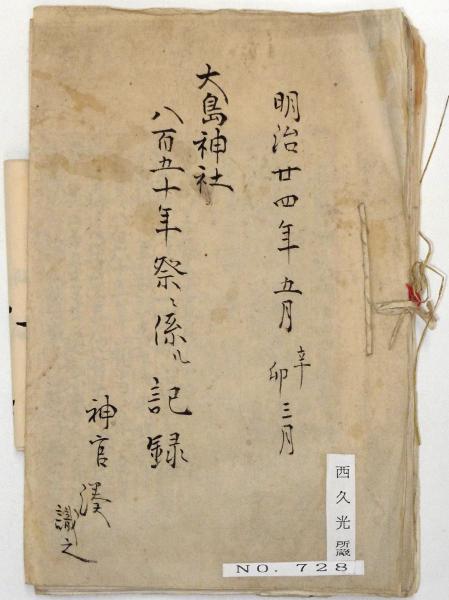 明治廿四年五月 辛卯三月
大島神社
八百五十年祭ニ係ル記録
神官 湊
識之
西久光 所蔵
NO. 728